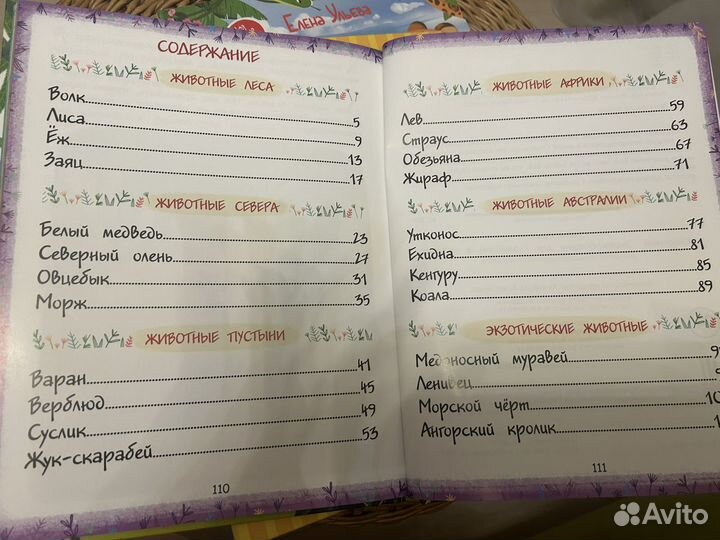 Елена Ульева
СОДЕРЖАНИЕ
ЖИВОТНЫЕ ЛЕСА
Волк.....5
Лиса.....9
Ёж.....13
Заяц.....17
ЖИВОТНЫЕ СЕВЕРА
Белый медведь.....23
Северный олень.....27
Овцебык.....31
Морж.....35
ЖИВОТНЫЕ ПУСТЫНИ
Варан.....41
Верблюд.....45
Суслик.....49
Жук-скарабей.....53
110
ЖИВОТНЫЕ АФРИКИ
Лев.....59
Страус.....63
Обезьяна.....67
Жираф.....71
ЖИВОТНЫЕ АВСТРАЛИИ
Утконос.....77
Ехидна.....81
Кенгуру.....85
Коала.....89
ЭКЗОТИЧЕСКИЕ ЖИВОТНЫЕ
Медоносный муравей.....
Ленивец.....
Морской чёрт.....
Ангорский кролик.....
111
Avito